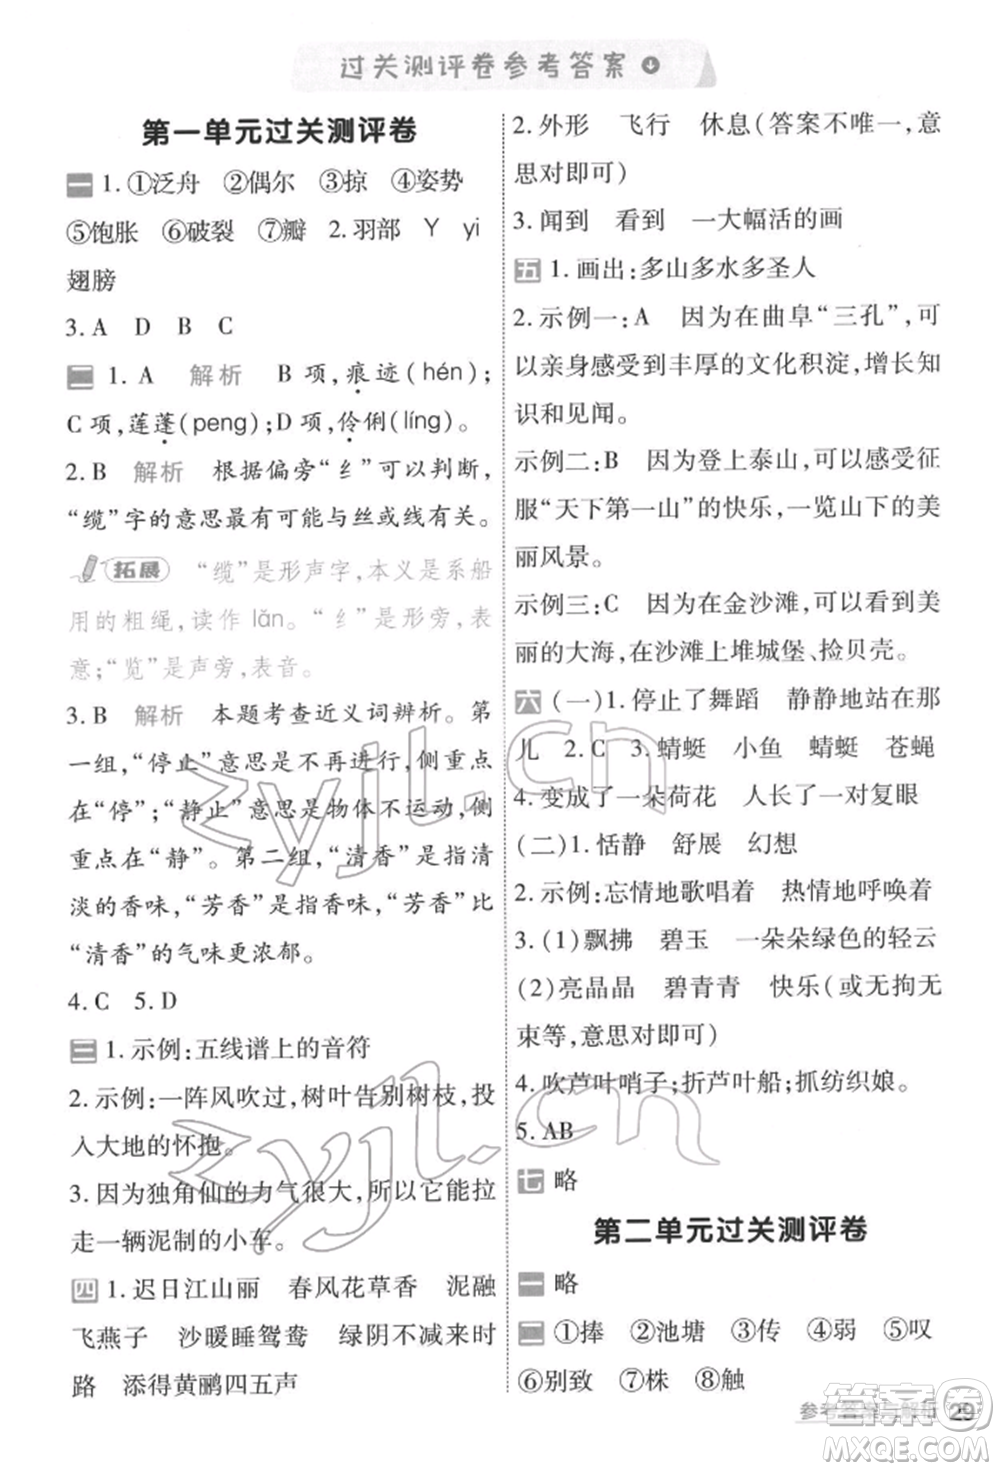 过关测评卷参考答案
第一单元过关测评卷
一 1.①泛舟 ②偶尔 ③掠 ④姿势
⑤饱胀 ⑥破裂 ⑦瓣 2.羽部 Y yi
翅膀
3.A D B C
二 1.A 解析 B项,痕迹(hén);
C项,莲蓬(peng);D项,伶俐(líng)。
2.B 解析 根据偏旁“纟”可以判断,
“缆”字的意思最有可能与丝或线有关。
拓展 “缆”是形声字,本义是系船
用的粗绳,读作lǎn。“纟”是形旁,表
意;“览”是声旁,表音。
3.B 解析 本题考查近义词辨析。第
一组,“停止”意思是不再进行,侧重点
在“停”;“静止”意思是物体不运动,侧
重点在“静”。第二组,“清香”是指清
淡的香味,“芳香”是指香味,“芳香”比
“清香”的气味更浓郁。
4.C 5.D
三 1.示例:五线谱上的音符
2.示例:一阵风吹过,树叶告别树枝,投
入大地的怀抱。
3.因为独角仙的力气很大,所以它能拉
走一辆泥制的小车。
四 1.迟日江山丽 春风花草香 泥融
飞燕子 沙暖睡鸳鸯 绿阴不减来时
路 添得黄鹂四五声
2.外形 飞行 休息(答案不唯一,意
思对即可)
3.闻到 看到 一大幅活的画
五 1.画出:多山多水多圣人
2.示例一:A 因为在曲阜“三孔”,可
以亲身感受到丰厚的文化积淀,增长知
识和见闻。
示例二:B 因为登上泰山,能感受征
服“天下第一山”的快乐,一览山下的美
丽风景。
示例三:C 因为在金沙滩,可以看到美
丽的大海,在沙滩上堆城堡、捡贝壳。
六 (一)1.停止了舞蹈 静静地站在那
儿 2.C 3.蜻蜓 小鱼 蜻蜓 苍蝇
4.变成了一朵荷花 人长了一对复眼
(二)1.恬静 舒展 幻想
2.示例:忘情地歌唱着 热情地呼唤着
3.(1)飘拂 碧玉 一朵朵绿色的轻云
(2)亮晶晶 碧青青 快乐(或无拘无
束等,意思对即可)
4.吹芦叶哨子;折芦叶船;抓纺织娘。
5.AB
七 略
第二单元过关测评卷
一 略
二 ①捧 ②池塘 ③传 ④弱 ⑤叹
⑥别致 ⑦株 ⑧触
参考答案与解析 29
zyjl.cn
zyjl.cn
答案圈
MXQE.COM